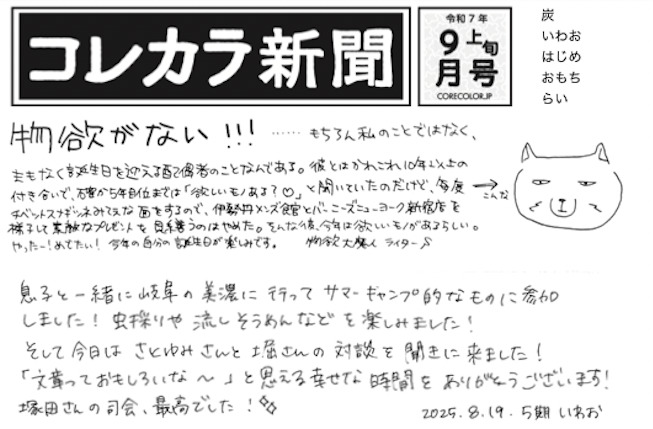 コレカラ新聞
令和7年
9月上旬号
CORECOLOR.JP
炭
いわお
はじめ
おもち
らい
物欲がない!!! ……もちろん私のことではなく、
まもなく誕生日を迎える配偶者のことなんである。彼とはかれこれ10年以上の
付き合いで、確か5年目位までは「欲しいモノある?♡」と聞いていたのだけど、毎度
チベットスナギツネみてえな面をするので、伊勢丹メンズ館とバーニーズニューヨーク新宿店を
梯子して素敵なプレゼントを見繕うのはやめた。そんな彼、今年は欲しいモノがあるらしい。
やったー!めでたい! 今年の自分の誕生日が楽しみです。 物欲大魔人 ライター♪
→
こんな
息子と一緒に岐阜の美濃に行ってサマーキャンプ的なものに参加
しました!虫採りや流しそうめんなどを楽しみました!
そして今日はさとゆみさんと堀さんの対談を聞きに来ました!
「文章っておもしろいな〜」と思える幸せな時間をありがとうございます!
塚田さんの司会、最高でした!✨
2025.8.19.5期 いわお